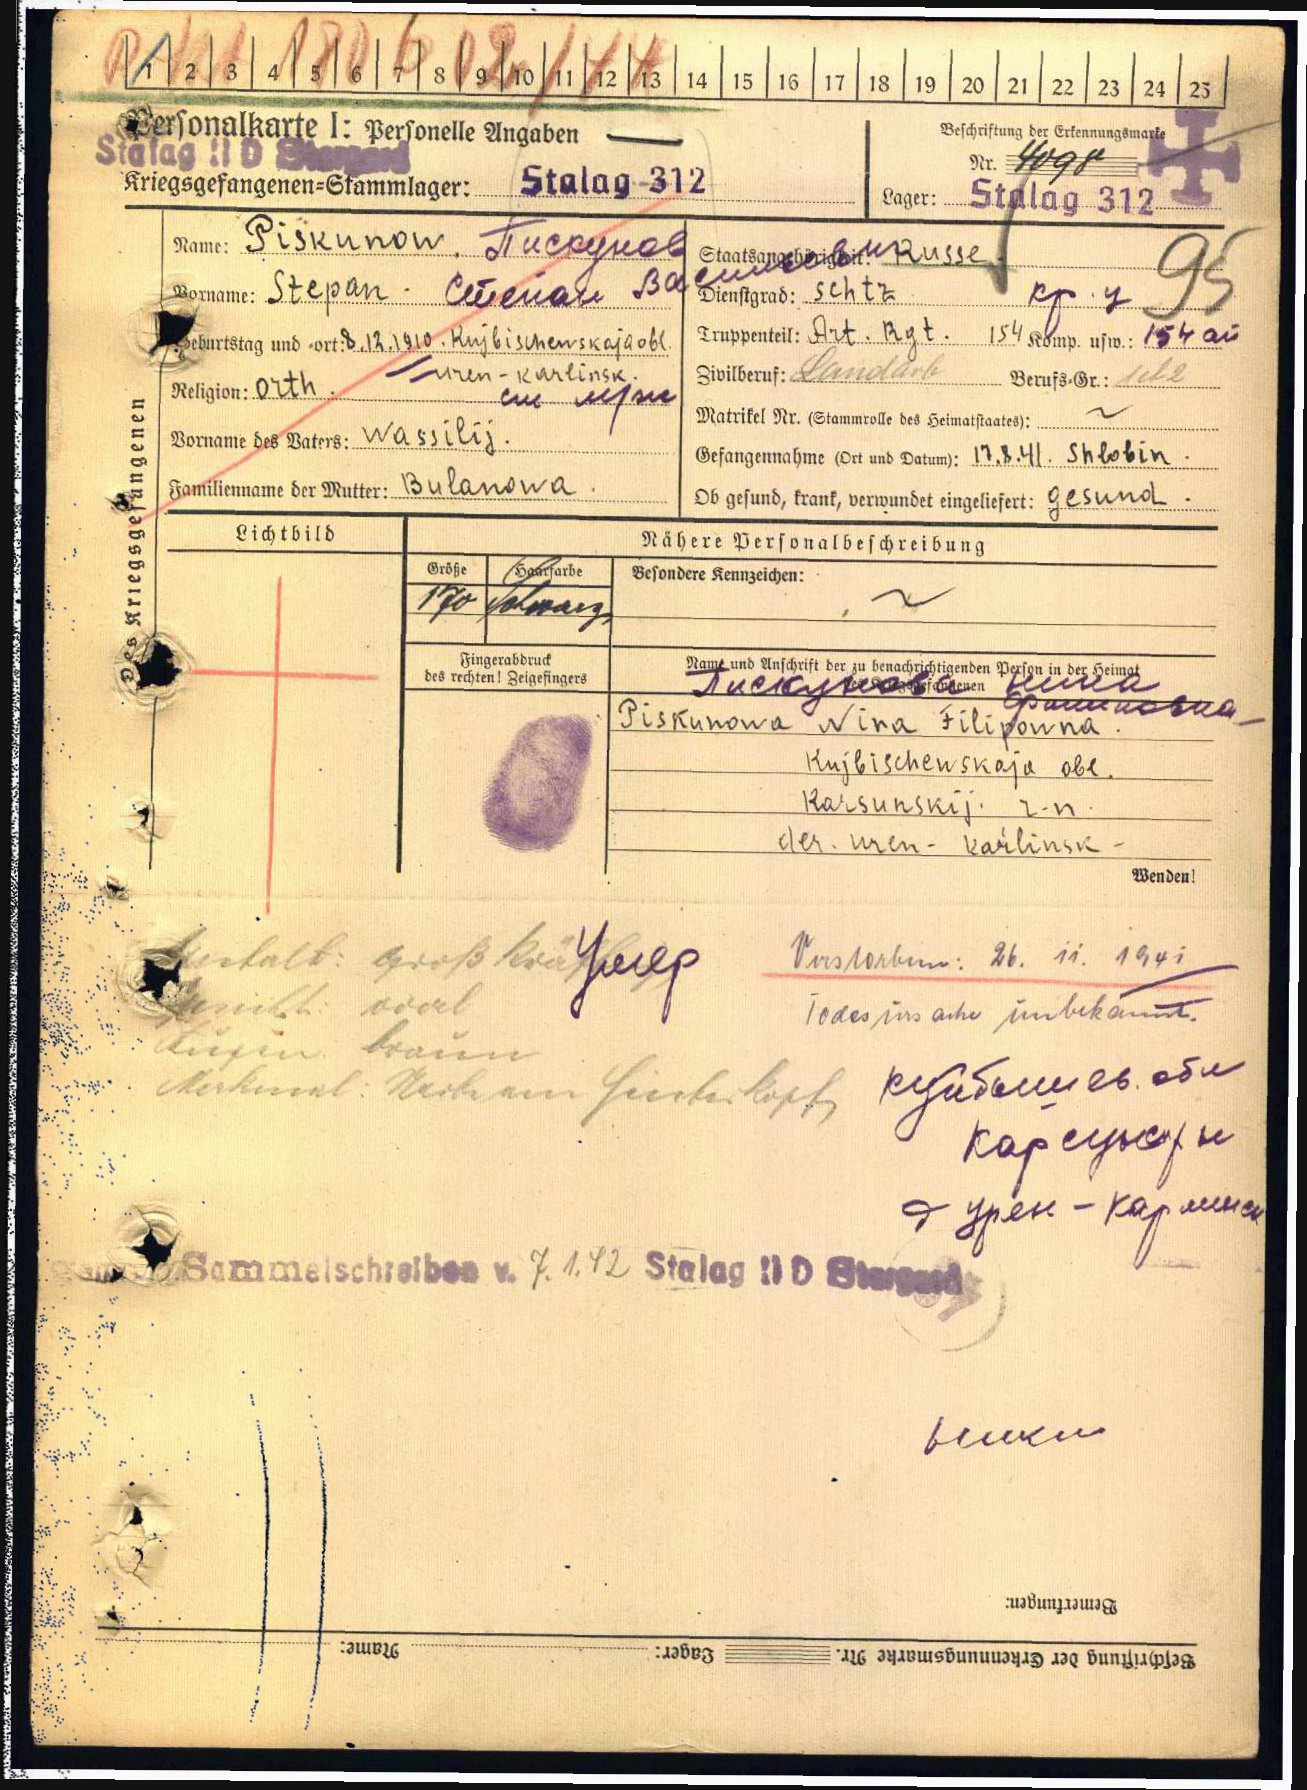 1 2 3 4 5 6 7 8 9 10 11 12 13 14 15 16 17 18 19 20 21 22 23 24 25
Personalkarte I: Personelle Angaben
Beschriftung der Erkennungsmarke
Stalag II D Stargard
Nr. 4098
Kriegsgefangenen=Stammlager: Stalag 312
Lager: Stalag 312
Des Kriegsgefangenen
Name: Piskunow. Пискунов
Staatsangehörigkeit: Russe.
95
Vorname: Stepan. Степан Васильевич
Dienstgrad: Schtz кр. у
Geburtstag und =ort: 8.12.1910. Kujbischewskaja obl.
uren-Karlinsk.
Truppenteil: Art. Rgt. 154 Komp. usw.: 154 ап
Religion: orth.
Zivilberuf: Landarb Berufs=Gr.:
Matrikel Nr. (Stammrolle des Heimatstaates): ~
Vorname des Vaters: Wassilij.
Gefangennahme (Ort und Datum): 17.8.41. Shlobin.
Familienname der Mutter: Bulanowa.
Ob gesund, krank, verwundet eingeliefert: gesund.
Lichtbild
Nähere Personalbeschreibung
Größe Haarfarbe Besondere Kennzeichen:
170 schwarz ~
Fingerabdruck
des rechten! Zeigefingers
Name und Anschrift der zu benachrichtigenden Person in der Heimat
des Kriegsgefangenen
Пискунова Нина
Филиповна
Piskunowa Nina Filipowna.
Kujbischewskaja obl.
Karsunskij. r-n.
der. uren- Karlinsk-
Wenden!
Gestalt: groß kräftig
Умер
Verstorben: 26. 11. 1941
Gesicht: oval
Todesursache unbekannt.
Augen: braun
Merkmal: Narbe am Hinterkopf
Куйбышев. обл
Карсунс р н
д Урен-Карлинск
Sammelschreiben v. 7.1.42 Stalag II D Stargard
Bemerkungen:
Beschriftung der Erkennungsmarke Nr. Lager: Name: